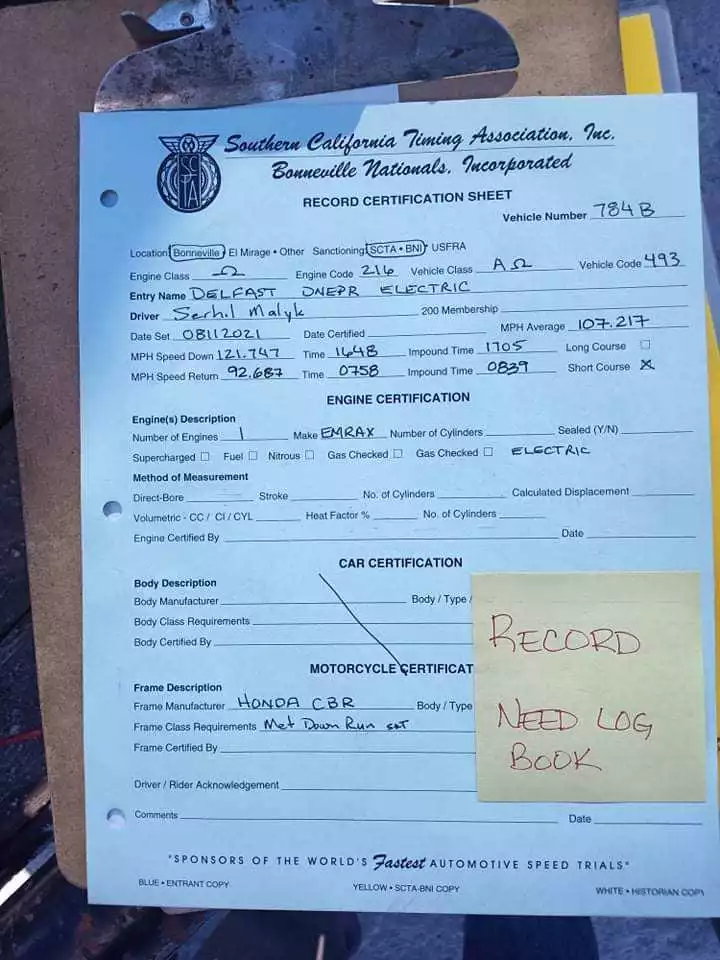 Southern California Timing Association, Inc.
Bonneville Nationals, Incorporated
SCTA
RECORD CERTIFICATION SHEET
Vehicle Number 784 B
Location Bonneville • El Mirage • Other Sanctioning SCTA • BNI • USFRA
Engine Class Ω Engine Code 216 Vehicle Class AΩ Vehicle Code 493
Entry Name DELFAST DNEPR ELECTRIC
Driver Serhii Malyk 200 Membership
Date Set 08112021 Date Certified MPH Average 107.217
MPH Speed Down 121.747 Time 1648 Impound Time 1705 Long Course ☐
MPH Speed Return 92.687 Time 0758 Impound Time 0839 Short Course ☒
ENGINE CERTIFICATION
Engine(s) Description
Number of Engines 1 Make EMRAX Number of Cylinders Sealed (Y/N)
Supercharged ☐ Fuel ☐ Nitrous ☐ Gas Checked ☐ Gas Checked ☐ ELECTRIC
Method of Measurement
Direct-Bore Stroke No. of Cylinders Calculated Displacement
Volumetric - CC / CI / CYL Heat Factor % No. of Cylinders
Engine Certified By Date
CAR CERTIFICATION
Body Description
Body Manufacturer Body / Type /
Body Class Requirements
Body Certified By
MOTORCYCLE CERTIFICAT
Frame Description
Frame Manufacturer HONDA CBR Body / Type
Frame Class Requirements Met Down Run
Frame Certified By
Driver / Rider Acknowledgement
Comments Date
RECORD
NEED LOG
BOOK
"SPONSORS OF THE WORLD'S Fastest AUTOMOTIVE SPEED TRIALS"
BLUE • ENTRANT COPY YELLOW • SCTA-BNI COPY WHITE • HISTORIAN COPY